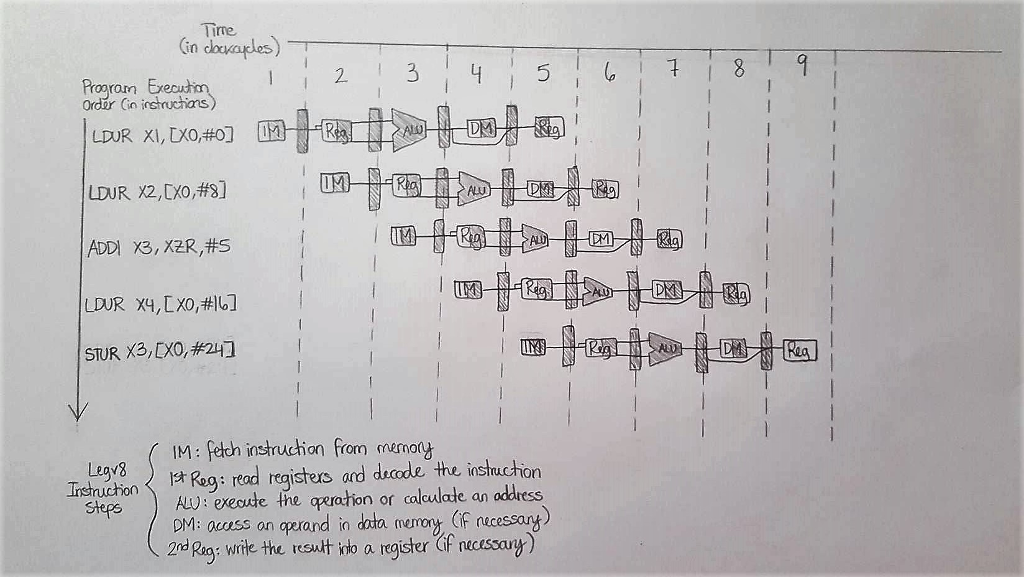 Time
(in clockcycles)
1 2 3 4 5 6 7 8 9
Program Execution
Order (in instructions)
LDUR X1, [X0,#0] IM Reg ALU DM Reg
LDUR X2, [X0,#8] IM Reg ALU DM Reg
ADDI X3, XZR, #5 IM Reg ALU DM Reg
LDUR X4, [X0,#16] IM Reg ALU DM Reg
STUR X3, [X0,#24] IM Reg ALU DM Reg
Legv8
Instruction
Steps
IM: fetch instruction from memory
1st Reg: read registers and decode the instruction
ALU: execute the operation or calculate an address
DM: access an operand in data memory (if necessary)
2nd Reg: write the result into a register (if necessary)